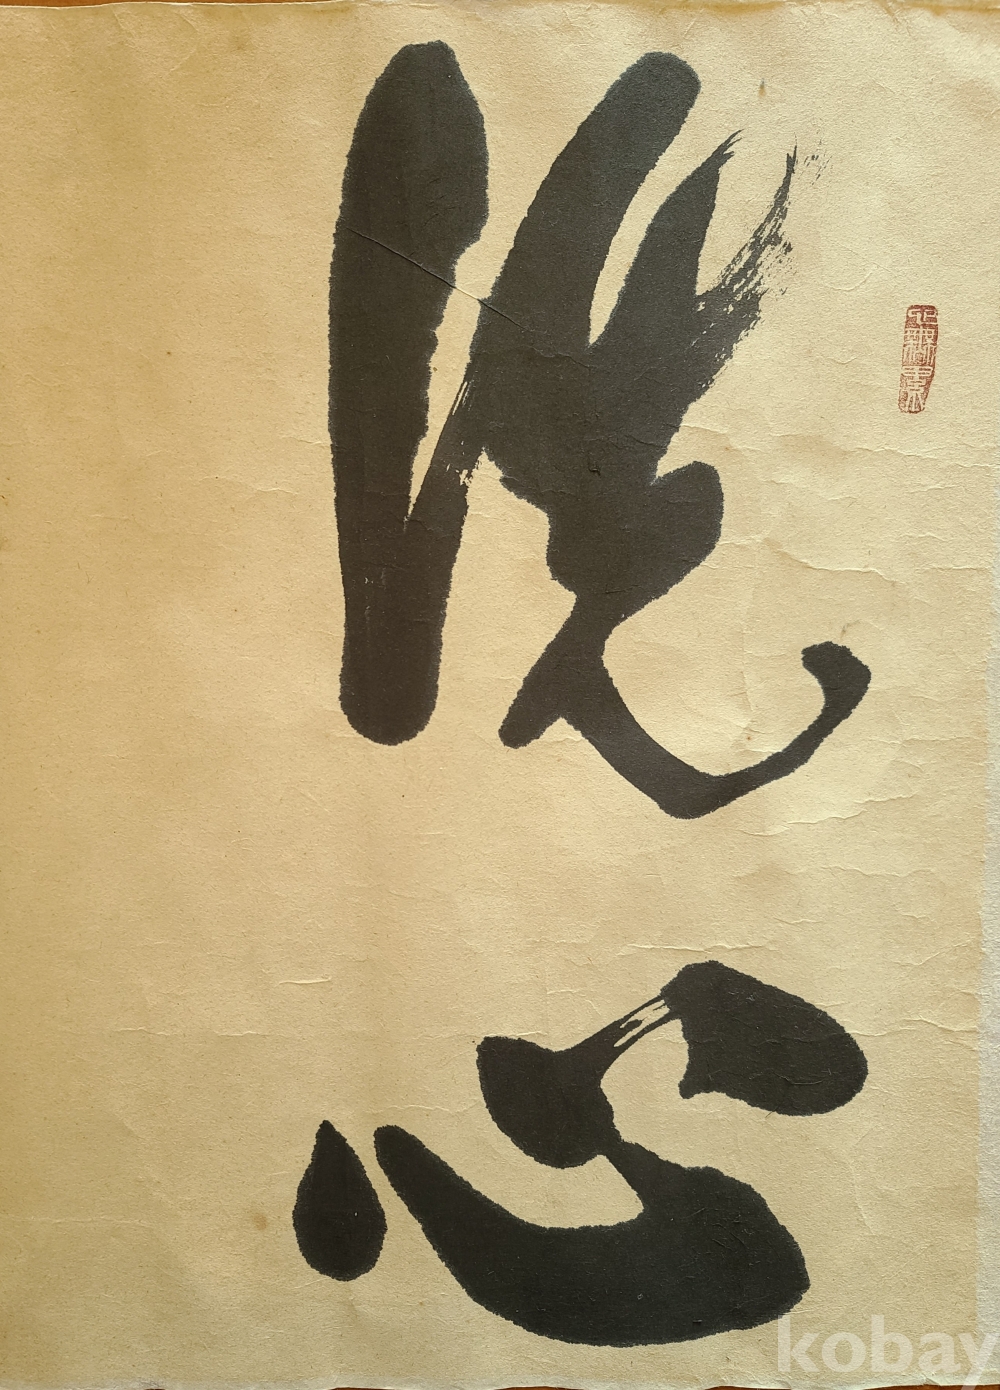 洗心
kobay